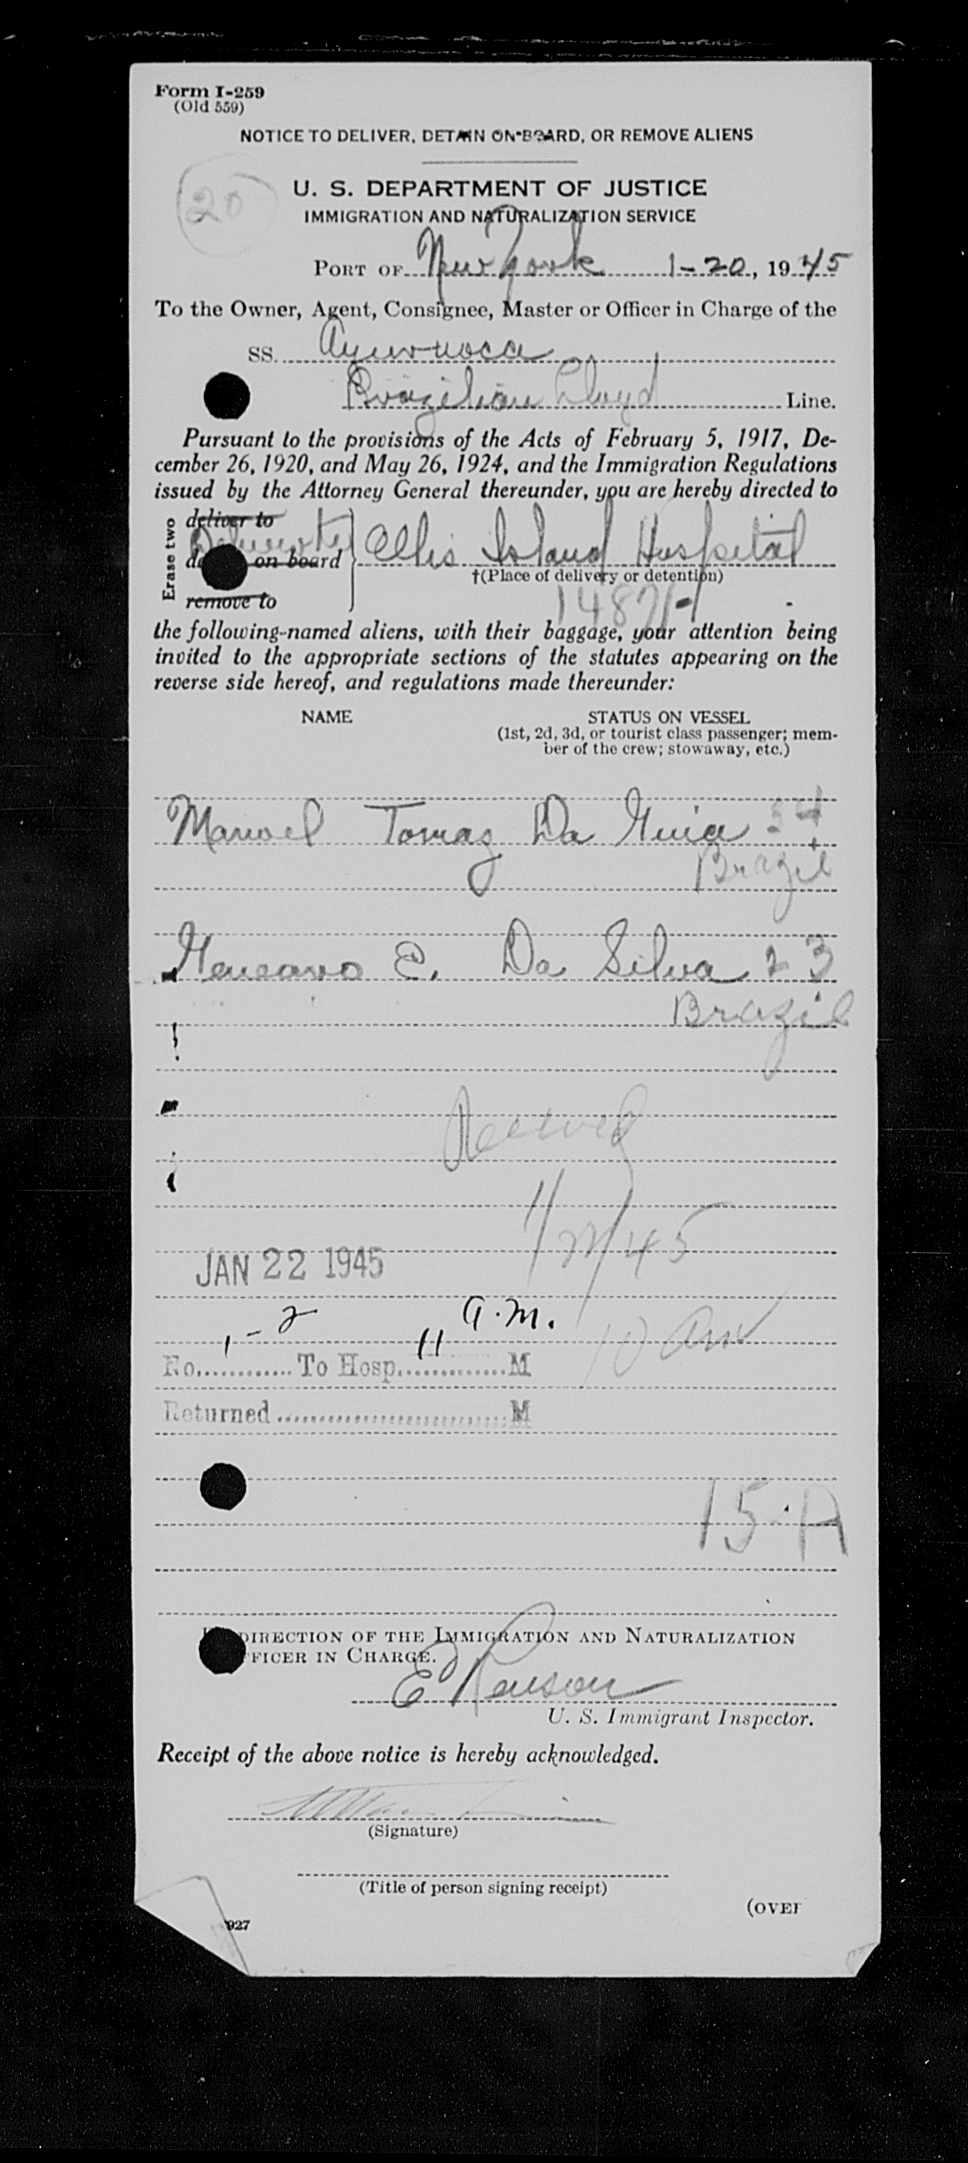 Form I-259
(Old 559)
NOTICE TO DELIVER, DETAIN ON BOARD, OR REMOVE ALIENS
20
U. S. DEPARTMENT OF JUSTICE
IMMIGRATION AND NATURALIZATION SERVICE
PORT OF New York 1-20, 1945
To the Owner, Agent, Consignee, Master or Officer in Charge of the
SS. Ayuruoca
Brazilian Lloyd Line.
Pursuant to the provisions of the Acts of February 5, 1917, De-
cember 26, 1920, and May 26, 1924, and the Immigration Regulations
issued by the Attorney General thereunder, you are hereby directed to
Erase two
deliver to
Deliver to Ellis Island Hospital
on board
†(Place of delivery or detention)
remove to
the following-named aliens, with their baggage, your attention being
invited to the appropriate sections of the statutes appearing on the
reverse side hereof, and regulations made thereunder:
NAME STATUS ON VESSEL
(1st, 2d, 3d, or tourist class passenger; mem-
ber of the crew; stowaway, etc.)
Manoel Tomaz Da Guia 34
Brazil
E. Da Silva 23
Brazil
Received
JAN 22 1945
1-2 11 A.M.
10 am
No. To Hosp. M
Returned M
15-A
DIRECTION OF THE IMMIGRATION AND NATURALIZATION
FFICER IN CHARGE.
U. S. Immigrant Inspector.
Receipt of the above notice is hereby acknowledged.
(Signature)
(Title of person signing receipt)
(OVER
927